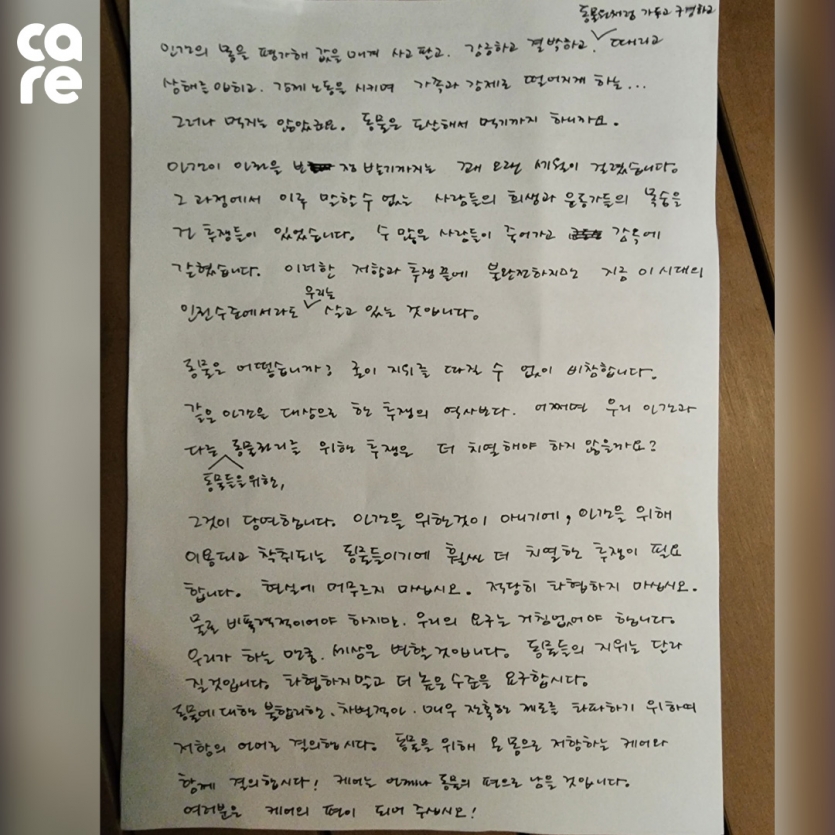 care
동물원처럼 가두고 구경하고
인간의 몸을 평가해 값을 매겨 사고 판고. 강금하고 결박하고 ∨ 때리고
상해를 입히고. 강제노동을 시키며 가족과 강제로 떨어지게 하는...
그러나 먹지는 않았죠. 동물은 도살해서 먹기까지 하니까요.
인간이 인권을 보장 받기까지는 꽤 오랜 세월이 걸렸습니다.
그 과정에서 이루 말할 수 없는 사람들의 희생과 운동가들의 목숨을
건 투쟁들이 있었습니다. 수 많은 사람들이 죽어가고 감옥에
갇혔습니다. 이러한 저항과 투쟁 끝에 불완전하지만 지금 이 시대의
인권수준에서라도 ∨ 우리는 살고 있는 것입니다.
동물은 어떻습니까? 굳이 지위를 따질 수 없이 비참합니다.
같은 인간을 대상으로 한 투쟁의 역사보다. 어쩌면 우리 인간과
다른 동물권리를 위한 투쟁은 더 치열해야 하지 않을까요?
동물들을 위한,
그것이 당연합니다. 인간을 위한것이 아니기에, 인간을 위해
이용되고 착취되는 동물들이기에 훨씬 더 치열한 투쟁이 필요
합니다. 현실에 머무르지 마십시오. 적당히 타협하지 마십시오.
물론 비폭력적이어야 하지만. 우리의 요구는 거침없어야 합니다.
우리가 하는 만큼. 세상은 변할것입니다. 동물들의 지위는 달라
질것입니다. 타협하지말고 더 높은 수준을 요구합시다.
동물에 대한 불합리한. 차별적인. 매우 잔혹한 제도를 타파하기 위하여
저항의 언어로 결의합시다. 동물을 위해 온 몸으로 저항하는 케어와
함께 결의합시다! 케어는 언제나 동물의 편으로 남을 것입니다.
여러분은 케어의 편이 되어 주십시오!